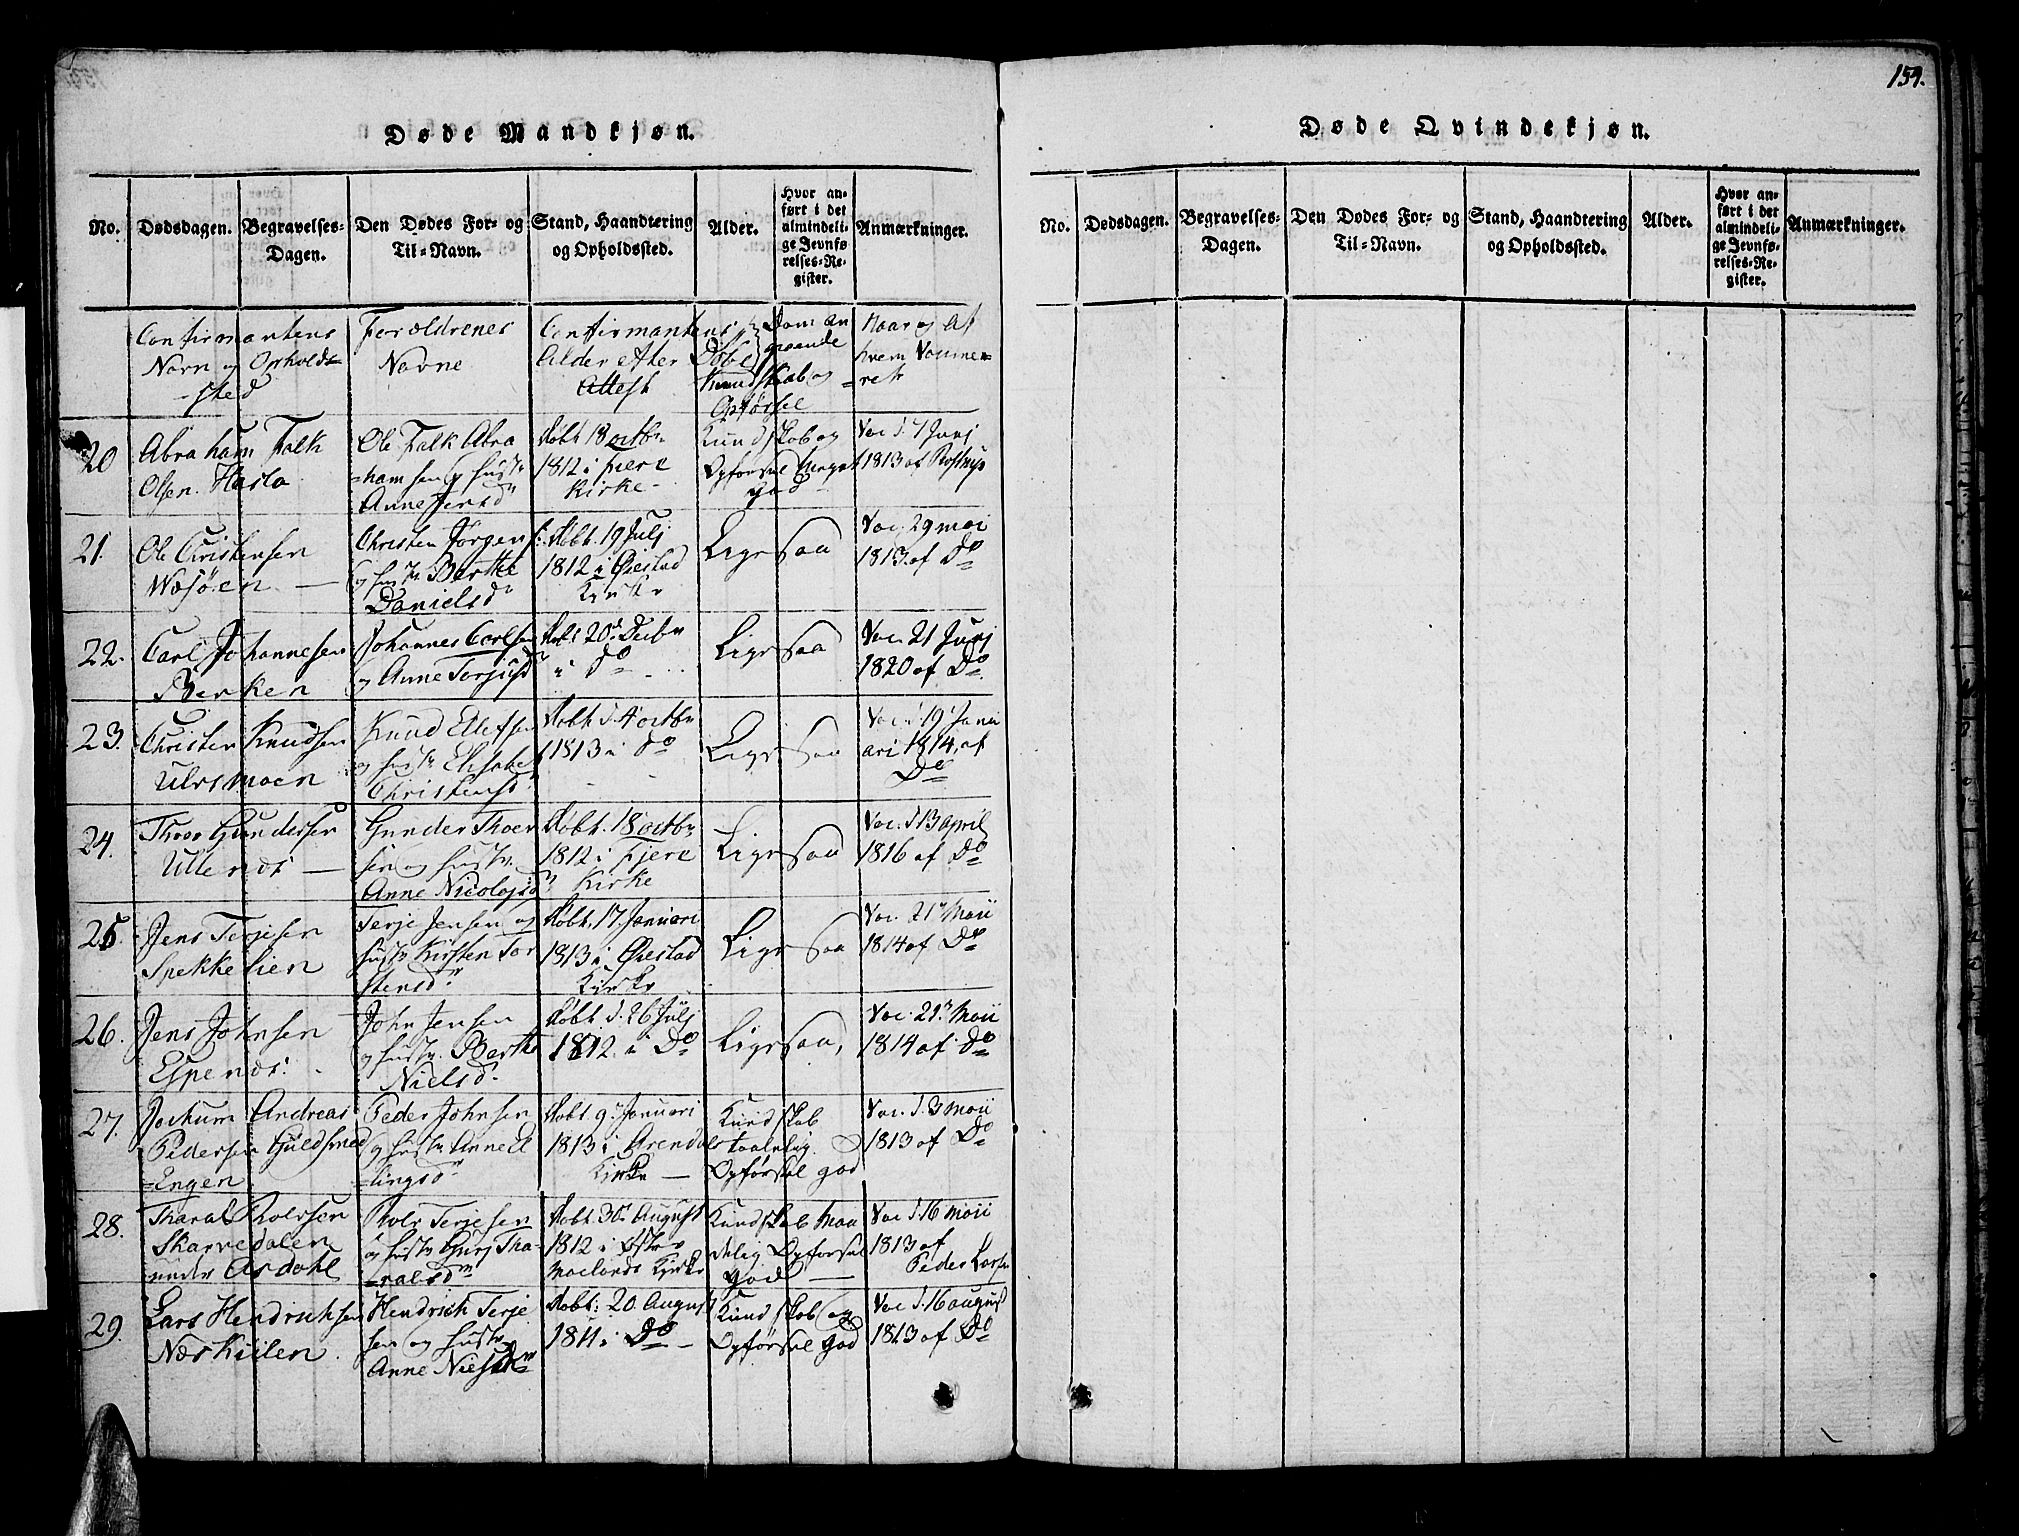 154.
Døde Mandkjøn.
No.
Dødsdagen.
Begravelses-
Dagen.
Den Dødes For- og
Til-Navn.
Stand, Haandtering
og Opholdssted.
Alder.
Hvor an-
ført i det
almindeli-
ge Jevnfø-
relses-Re-
gister.
Anmærkninger.
Confirmantens
Navn og Opholds-
sted
Forældrenes
Navne
Confirmantens
Alder efter
Attest
Døbe
Dom an
gaaende
Kundskab og
Opførsel
Naar og Af
hvem Vaccine-
ret
20
Abraham Falk
Olsen Hasla
Ole Falk Abra
=hamsen og hustr
Anne Jersd
Døbt 18 octbr
1812 i Fjere
Kirke
Kundskab og
Opførsel meget
god
Vac. d. 7 Junj
1813 af Rostrup
21.
Ole Christensen
Wasøen
Christen Jørgens:
og hustr Berthe
Danielsd
Døbt. 19 Julj
1812 i Øiestad
Kirke
Ligesaa
Vac. 29 mai
1813 af Do
22.
Carl Johannesen
Berken
Johannes Carlsen
og Anne Torjusd
Døbt 20d Decbr
i Do
Ligesaa
Vac. 21 Junj
1820 af Do
23.
Christen Knudsen
Ulvsmoen
Knud Ellefsen
og hustr Elisabet
Christensd
Døbt d. 4 octbr
1813 i do
Ligesaa
Vac. d. 19 Janu
ari 1814, af
Do
24.
Thoer Gundersen
Ullenæs
Gunder Thoer
sen og hustr
Anne Nicolajsd
Døbt. 18 octbr
1812 i Fjere
Kirke
Ligesaa
Vac. d 13 april
1816 af Do
25.
Jens Terjesen
Spekkelien
Terje Jensen og
hustr Kirsten Tor
stensd
Døbt. 17 Januari
1813 i Øiestad
Kirke
Ligesaa
Vac. 21 Maii
1814 af Do
26.
Jens Johnsen
Espenæs
John Jensen
og hustr. Berthe
Nielsd
Døbt d. 26 Julj
1812. i Do
Ligesaa,
Vac. 21 Maii
1814 af Do
27.
Jochum Andreas
Pedersen Guldsmed
=Engen
Peder Johnsen
og hustr Anne El
=lingsd
Døbt. 9 Januari
1813 i Arendals
Kirke
Kundskab
taalelig
Opførsel god
Vac. d. 3 maii
1813 af Do
28.
Tharal Roersen
Skarvedalen
under Asdahl
Roer Terjesen
og hustr Gurj Tha-
=ralsd
Døbt. 30 August
1812 i Østre
Moelands Kirke
Kundskab maa
delig Opførsel
god
Vac d. 16 maii
1813 af
Peder Larsen
29.
Lars Hendrichsen
Næskiilen
Hendrich Terje
sen og hustr
Anne Nielsd
Døbt: 20 August
1811 i Do
Kundskab og
Opførsel god
Vac d. 16 august
1813 af Do
Døde Qvindekjøn.
No.
Dødsdagen.
Begravelses-
Dagen.
Den Dødes For- og
Til-Navn.
Stand, Haandtering
og Opholdssted.
Alder.
Hvor an-
ført i det
almindeli-
ge Jevnfø-
relses-Re-
gister.
Anmærkninger.